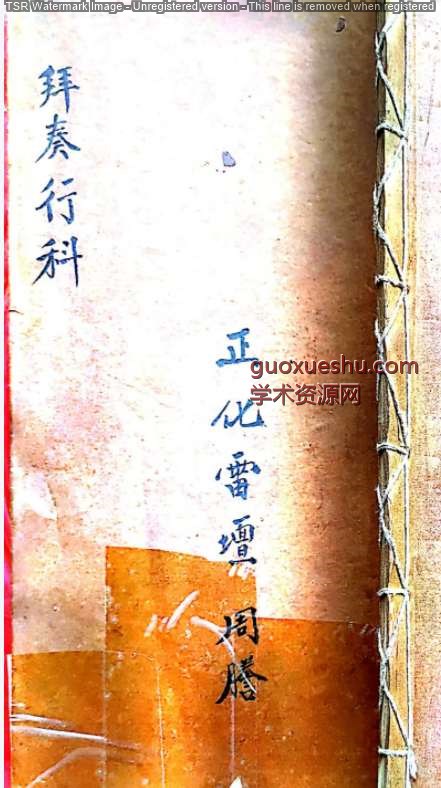 TSR Watermark Image - Unregistered version - This line is removed when registered
拜奏行科
正化雷壇 周謄
guoxueshu.com
学术资源网